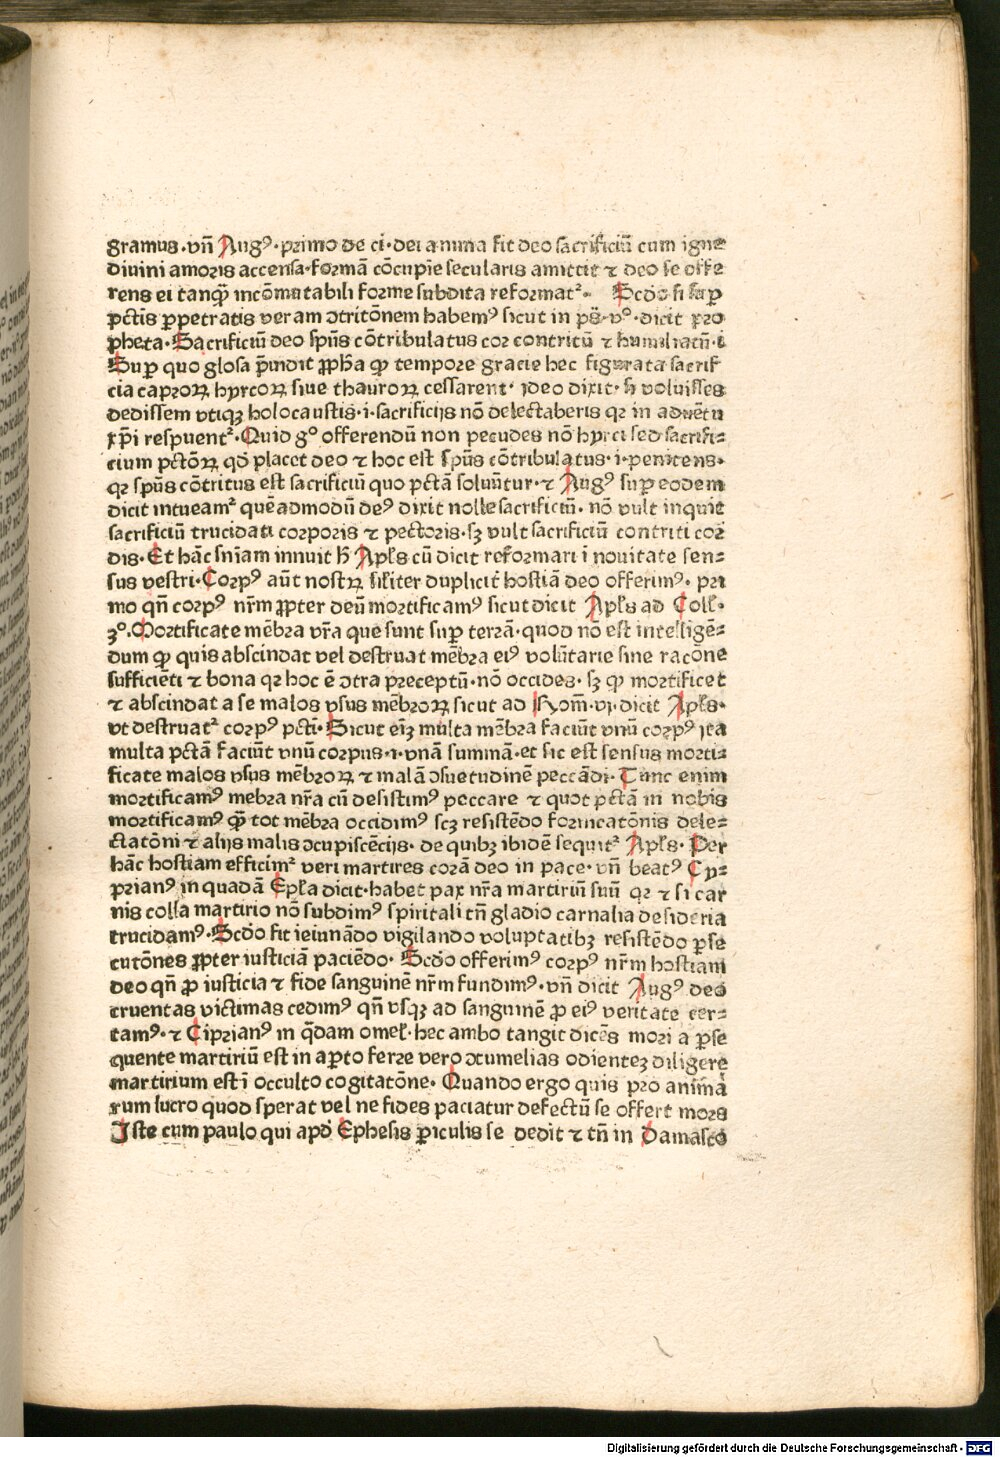 gramus·vñ Augꝰ·primo de ci·dei anima fit deo sacrificiū cum igne
diuini amoris accensa·formā cōcupīe secularis amittit ⁊ deo se offe
rens ei tanqꝫ incōmutabili forme subdita reformatᷣ· Scdo si suꝑ
pctīs ꝑpetratis veram ↄtritōnem habemꝰ sicut in ps̄·vº·dicit pro
pheta·Sacrificiū deo spūs cōtribulatus cor contritū ⁊ humiliatū·i
Suꝑ quo glosa p̄mdit ꝓpħa ꝙ tempore gracie hec figurata sacrif
cia caproꝝ hyrcoꝝ siue thauroꝝ cessarent· ideo dixit·si voluisses
dedissem vtiqꝫ holocaustis·i·sacrificijs nō delectaberis qꝛ in aduētu
xp̄i respuentᷣ·Quid gº offerendū non pecudes nō hyrci sed sacrifi⸗
cium pctōꝝ qd̄ placet deo ⁊ hoc est spūs cōtribulatus·i·penitens·
qꝛ spūs cōtritus est sacrificiū quo pctā soluūtur·⁊ Augꝰ suꝑ eodem
dicit intueamᷣ quēadmodū deꝰ dixit nolle sacrificiū· nō vult inquit
sacrificiū trucidati corporis ⁊ pectoris·sꝫ vult sacrificiū contriti cor
dis·Et hāc sniam innuit ħ Apl̄s cū dicit reformari ī nouitate sen⸗
sus vestri·Corpꝰ aūt nostꝝ sil̄iter duplicit̄ hostiā deo offerimꝰ· pri
mo qn̄ corpꝰ nr̄m ꝓpter deū mortificamꝰ sicut dicit Apl̄s ad Coll̄·
3º·Mortificate mēbra vr̄a que sunt suꝑ terrā·quod nō est intelligē⸗
dum ꝙ quis abscindat vel destruat mēbra eiꝰ volūtarie sine racōne
sufficiēti ⁊ bona qꝛ hoc ē ↄtra preceptū·nō occides·sꝫ ꝙ mortificet
⁊ abscindat a se malos vsus mēbroꝝ sicut ad Rom̄·vj·dicit Apl̄s·
vt destruatᷣ corpꝰ pcti·Sicut eīꝫ multa mēbra faciūt vnū corpꝰ ita
multa pctā faciūt vnū corpus·i·vnā summā·et sic est sensus morti⸗
ficate malos vsus mēbroꝝ ⁊ malā ↄsuetudinē peccādi·Tunc enim
mortificamꝰ mebra nr̄a cū desistimꝰ peccare ⁊ quot pctā in nobis
mortificamꝰ qꝫ tot mēbra occidimꝰ scꝫ resistēdo fornicatōnis dele⸗
ctatōni ⁊ alijs malis ↄcupiscēcijs·de quibꝫ ibidē sequitᷣ Apl̄s·Per
hāc hostiam efficimᷣ veri martires corā deo in pace·vñ beatꝰ Cy⸗
prianꝰ in quadā Epl̄a dicit·habet pax nr̄a martiriū suū qꝛ ⁊ si car
nis colla martirio nō subdimꝰ spiritali tn̄ gladio carnalia desideria
trucidamꝰ·Scdo fit ieiunādo vigilando voluptatibꝫ resistēdo ꝑse
cutōnes ꝓpter iusticiā paciēdo· Scdo offerimꝰ corpꝰ nr̄m hostiam
deo qn̄ ꝓ iusticia ⁊ fide sanguinē nr̄m fundimꝰ·vñ dicit Augꝰ deo
cruentas victimas cedimꝰ qn̄ vsqꝫ ad sanguinē ꝓ eiꝰ veritate cer⸗
tamꝰ·⁊ Ciprianꝰ in q̄dam omel̄·hec ambo tangit dicēs mori a ꝑse
quente martiriū est in aꝑto ferre vero ↄtumelias odientez diligere
martirium est ī occulto cogitatōne· Quando ergo quis pro animā
rum lucro quod sperat vel ne fides paciatur defectū se offert mors
Iste cum paulo qui apd̄ Ephesis ꝑiculis se dedit ⁊ tn̄ in Damasco
Digitalisierung gefördert durch die Deutsche Forschungsgemeinschaft - DFG